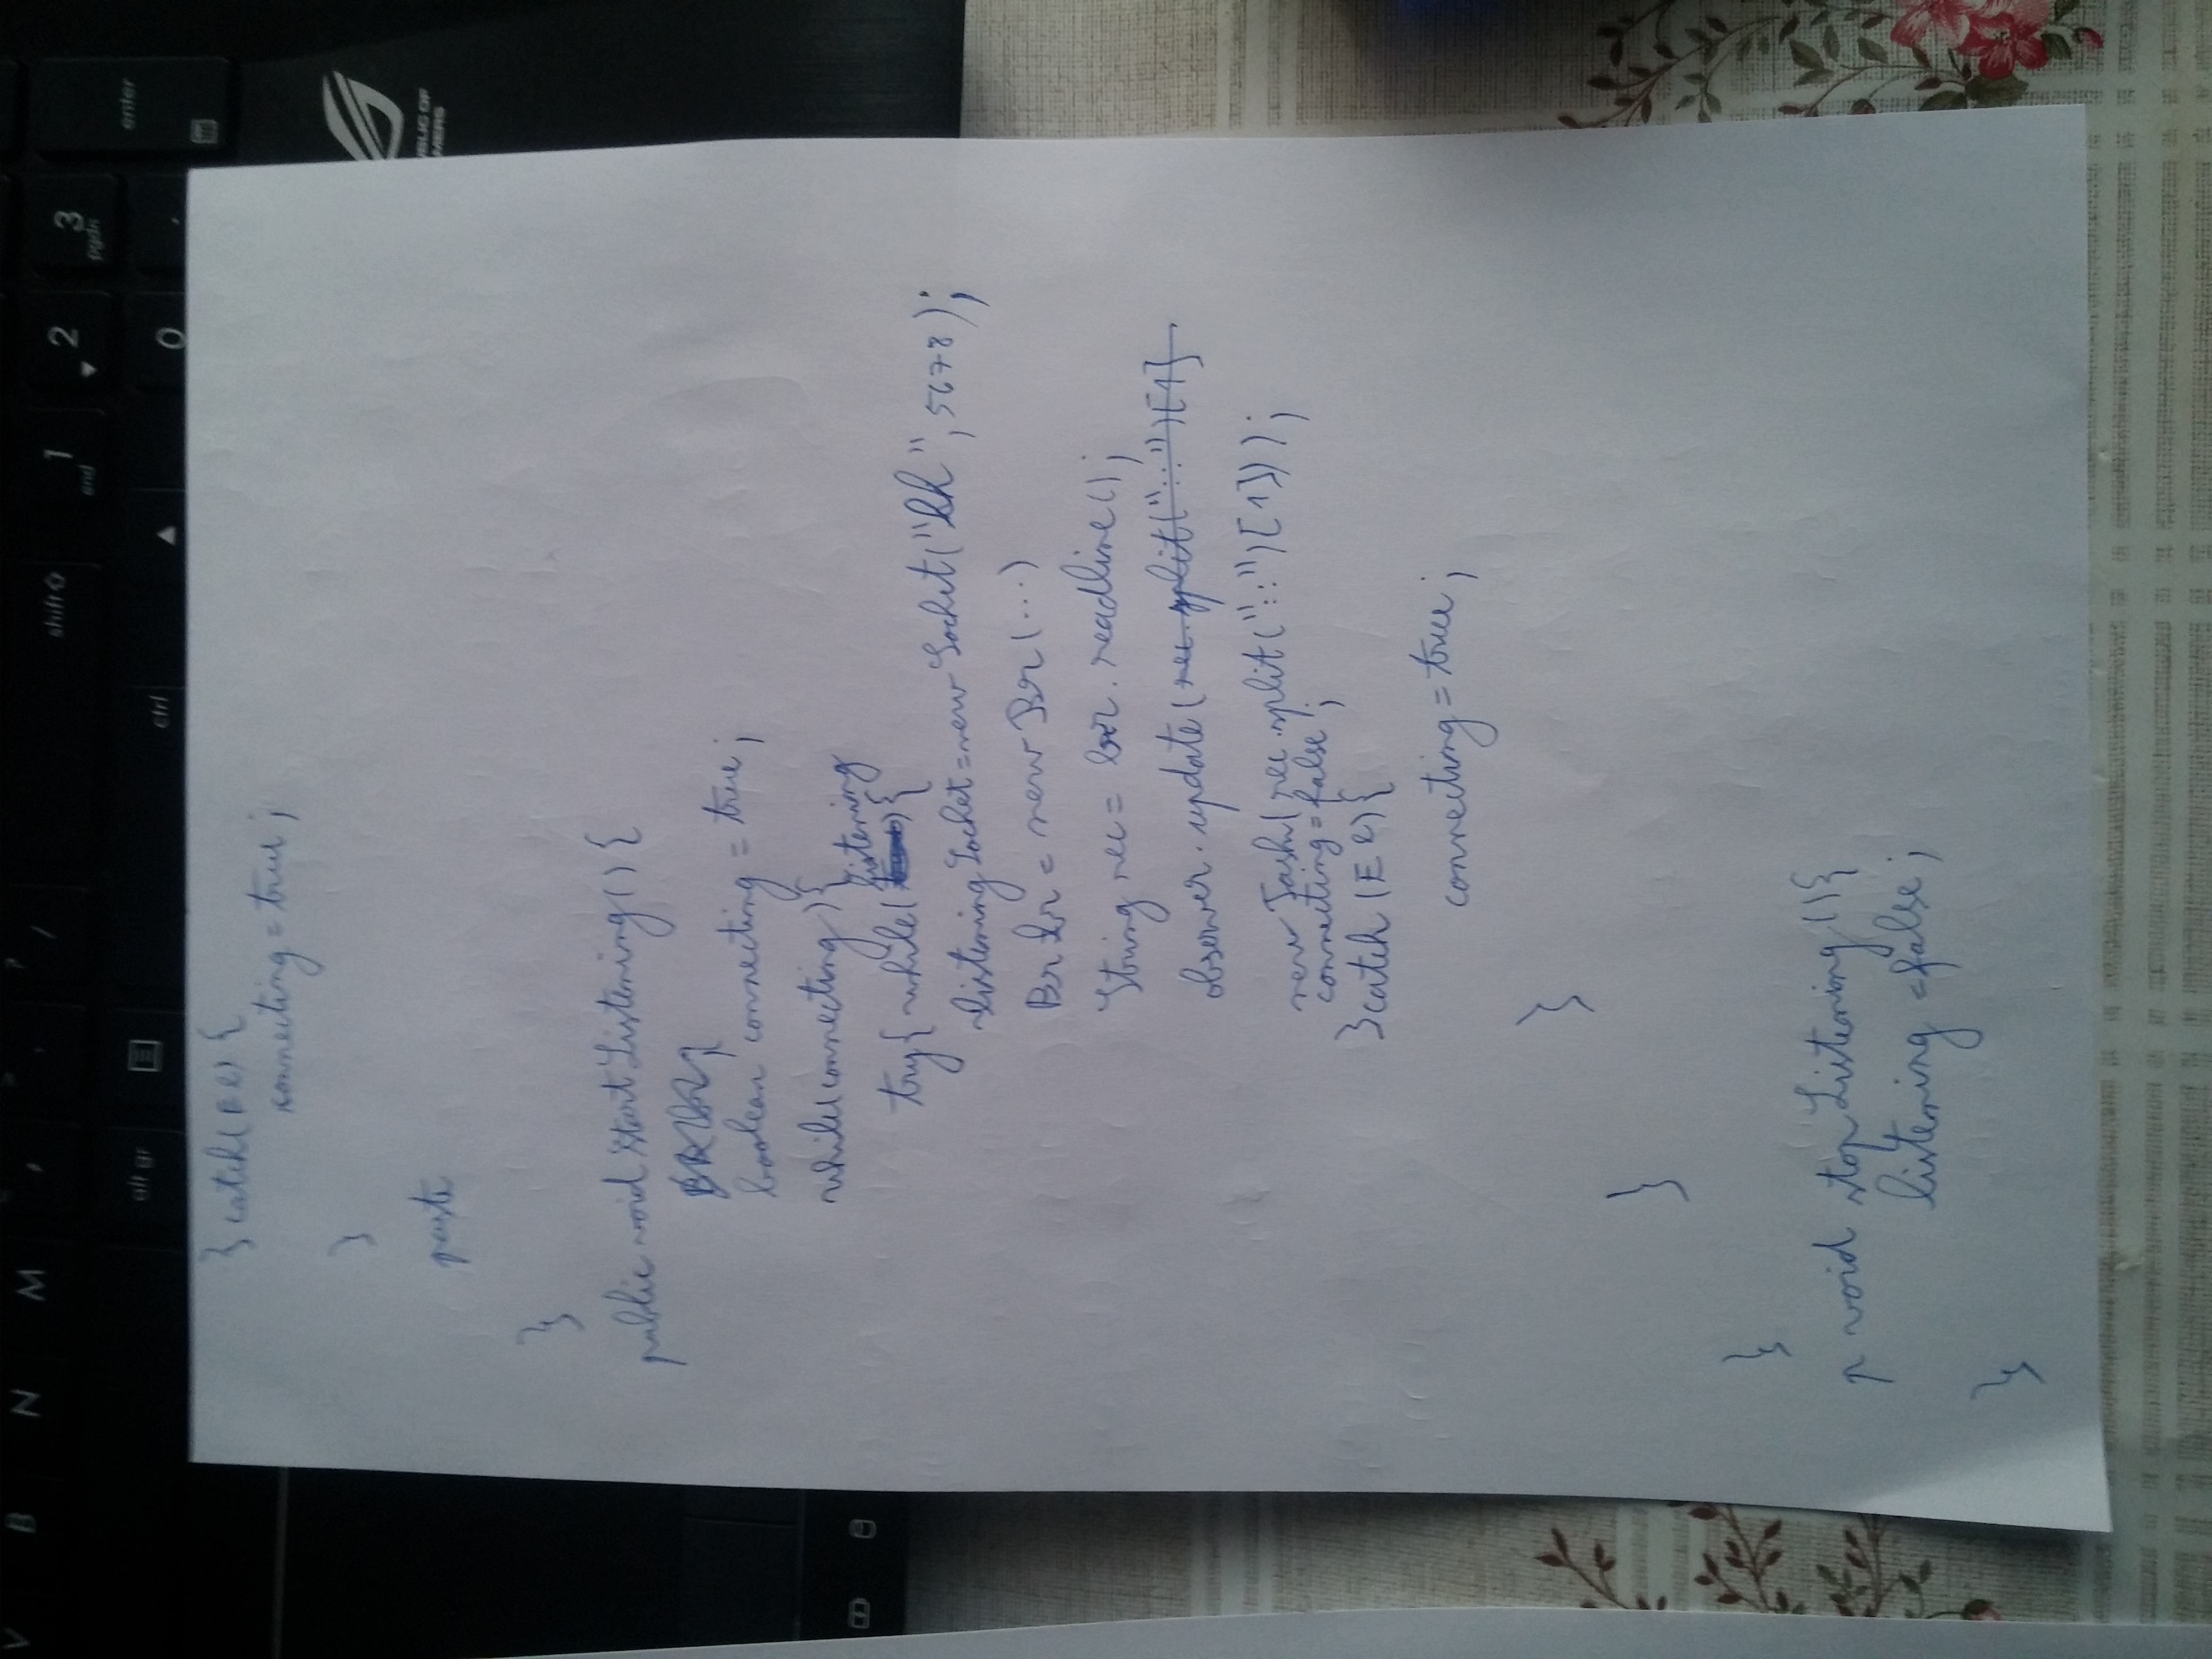 V B N M , . ? /
shift 1 end 2 3 pgdn
alt gr ctrl 0 . enter
} catch(E e) {
connecting = true;
}
paste
}
public void startListening() {
boolean connecting = true;
while(connecting){
listening
try{ while( ){
listeningSocket=new Socket("lh", 5678);
Br br = new Br(...)
String rec = br.readline();
observer.update(rec.split("::")[1]
new Task(rec.split("::")[1]));
connecting=false;
}catch (E e){
connecting = true;
}
}
}
p void stopListening(){
listening =false;
}
BLIC OF
MERS